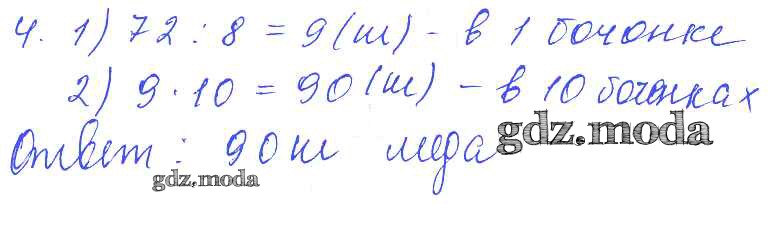 4. 1) 72 : 8 = 9 (кг) - в 1 бочонке
2) 9 · 10 = 90 (кг) - в 10 бочонках
Ответ : 90 кг меда
gdz.moda
gdz.moda